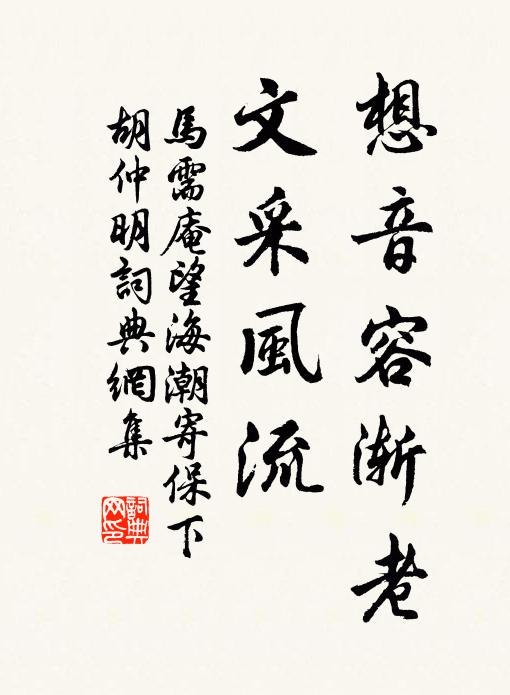 想音容渐老
文采風流
馬需庵望海潮寄保下
胡仲明詞典網集
詞典
网印